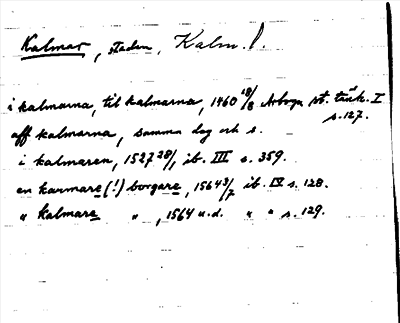 Kalmar, staden, Kalm. l.
i kalmarna, til kalmarna, 1460 18/8 Arboga st. tänk. I s. 127.
aff kalmarna, samma dag och s.
i kalmaren, 1527 28/, ib. III s. 359.
en karmare (!) borgare, 1564 3/7 ib. IV s. 128.
" kalmare " , 1564 u.d. " " s. 129.